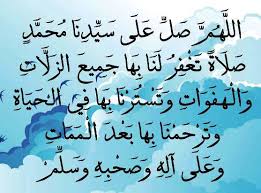 اللَّهُمَّ صَلِّ عَلَى سَيِّدِنَا مُحَمَّدٍ
صَلَاةً تَغْفِرُ لَنَا بِهَا جَمِيعَ الزَّلَّاتِ
وَالْهَفَوَاتِ وَتَسْتُرُنَا بِهَا فِي الْحَيَاةِ
وَتَرْحَمُنَا بِهَا بَعْدَ الْمَمَاتِ
وَعَلَى آلِهِ وَصَحْبِهِ وَسَلِّمْ